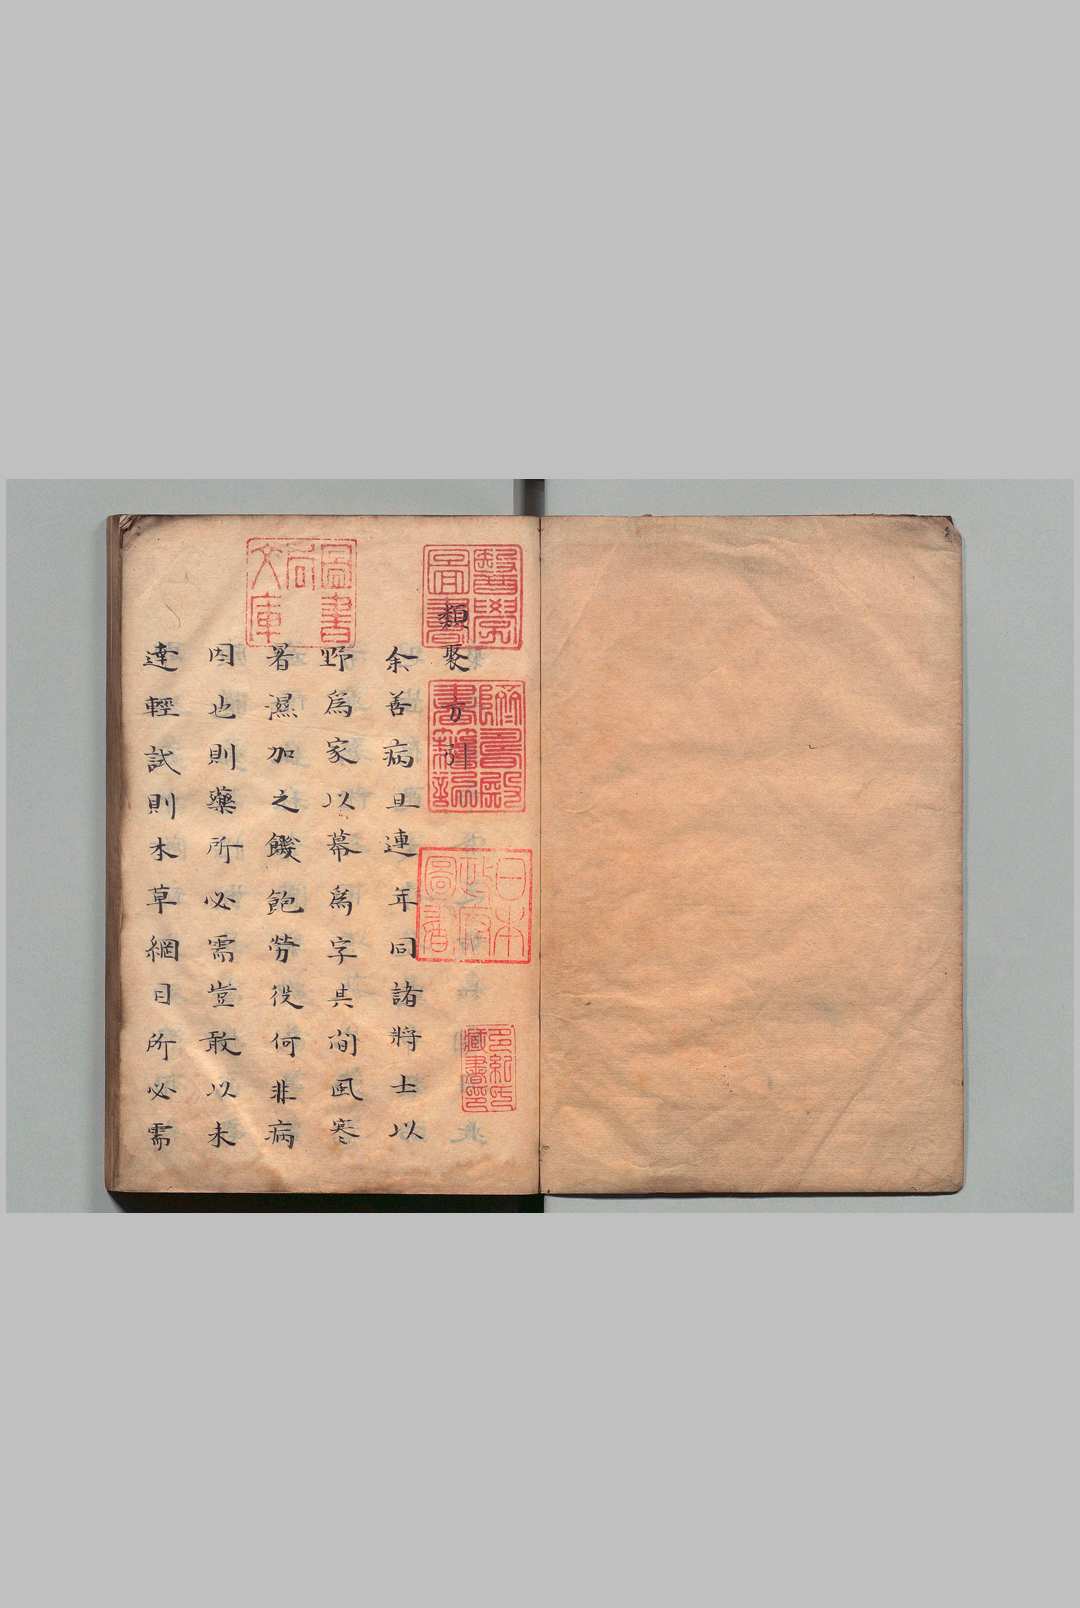 類聚方引
余善病且連年同諸將士以
野爲家以幕爲宇其間風寒
暑濕加之饑飽勞役何非病
因也則藥所必需豈敢以未
達輕試則本草綱目所必需
醫學圖書
躋壽殿書籍記
日本政府圖書
圖書局文庫
藏書印